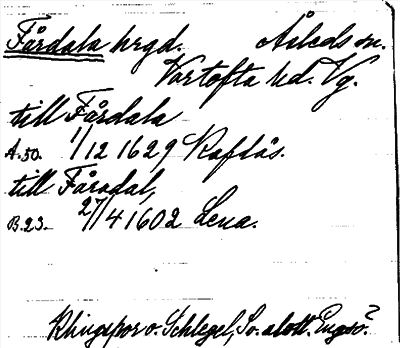 Fårdala hrgd. Åsleds sn.
Vartofta hd. Vg.
till Fårdala
A.50. 1/12 1629 Kaflås.
till Fårdal,
B.23. 27/4 1602 Lena.
Klingspor o. Schlegel, So. alott. Engsö?